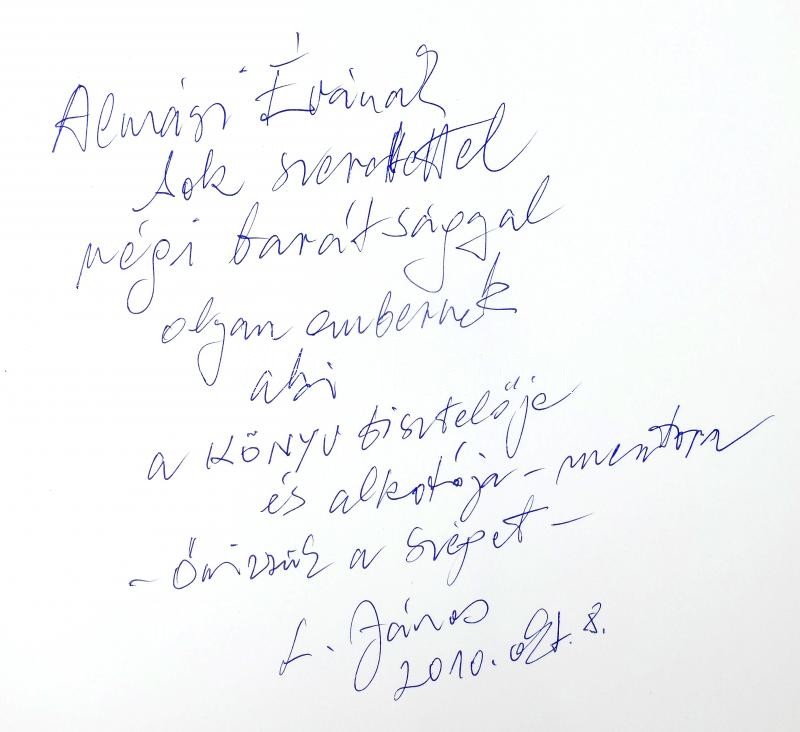 Almági Évának
Sok szeretettel
régi barátsággal
olyan embernek
aki
a KÖNYV tisztelője
és alkotója – mentora
– Őrizzük a szépet –
L. János
2010. okt. 8.